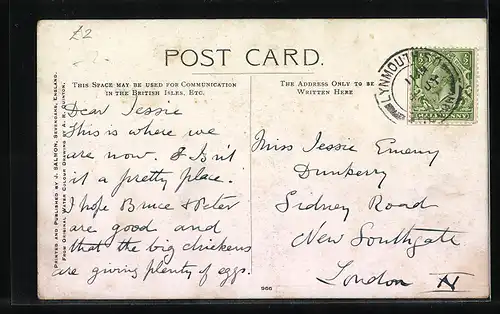 £2
POST CARD.
THIS SPACE MAY BE USED FOR COMMUNICATION
IN THE BRITISH ISLES, ETC.
THE ADDRESS ONLY TO BE
WRITTEN HERE
LYNMOUTH
HALFPENNY
PRINTED AND PUBLISHED BY J. SALMON, SEVENOAKS, ENGLAND.
FROM ORIGINAL WATER COLOUR DRAWING BY A. R. QUINTON.
Dear Jessie
This is where we
are now. & Isn't
it a pretty place.
I hope Bruce & Peter
are good and
that the big chickens
are giving plenty of eggs.
Miss Jessie Emery
Dunkerry
Sidney Road
New Southgate
London N
966